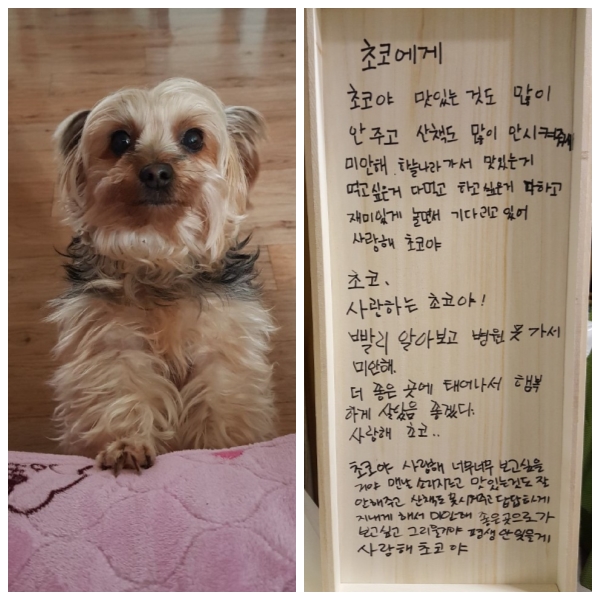 초코에게
초코야 맛있는 것도 많이
안 주고 산책도 많이 안시켜줘서
미안해 하늘나라 가서 맛있는거
먹고싶은거 다먹고 하고 싶은거 다하고
재미있게 놀면서 기다리고 있어
사랑해 초코야
초코.
사란하는 초코야!
빨리 알아보고 병원 못 가서
미안해.
더 좋은 곳에 태어나서 행복
하게 살았음 좋겠다.
사랑해 초코..
초코야 사랑해 너무너무 보고싶을
거야 맨날 소리지르고 맛있는것도 잘
안해주고 산책도 못시켜주고 답답하게
지내게 해서 미안해 좋은곳으로가
보고싶고 그리울거야 평생 안잊을게
사랑해 초코야